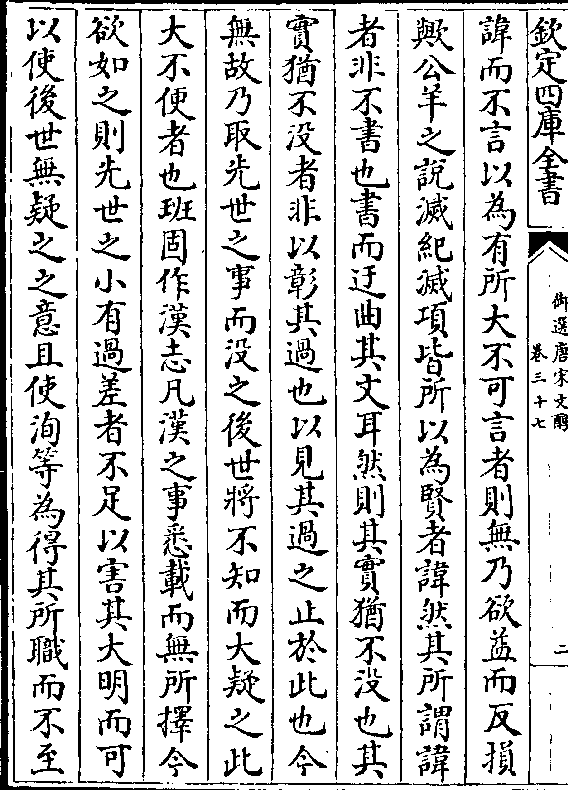 欽定四庫全書
御選唐宋文醇
卷三十七
二
諱而不言以為有所大不可言者則無乃欲益而反損
歟公羊之說滅紀滅項皆所以為賢者諱然其所謂諱
者非不書也書而迂曲其文耳然則其實猶不没也其
實猶不没者非以彰其過也以見其過之止於此也今
無故乃取先世之事而没之後世將不知而大疑之此
大不便者也班固作漢志凡漢之事悉載而無所擇今
欲如之則先世之小有過差者不足以害其大明而可
以使後世無疑之之意且使洵等為得其所職而不至